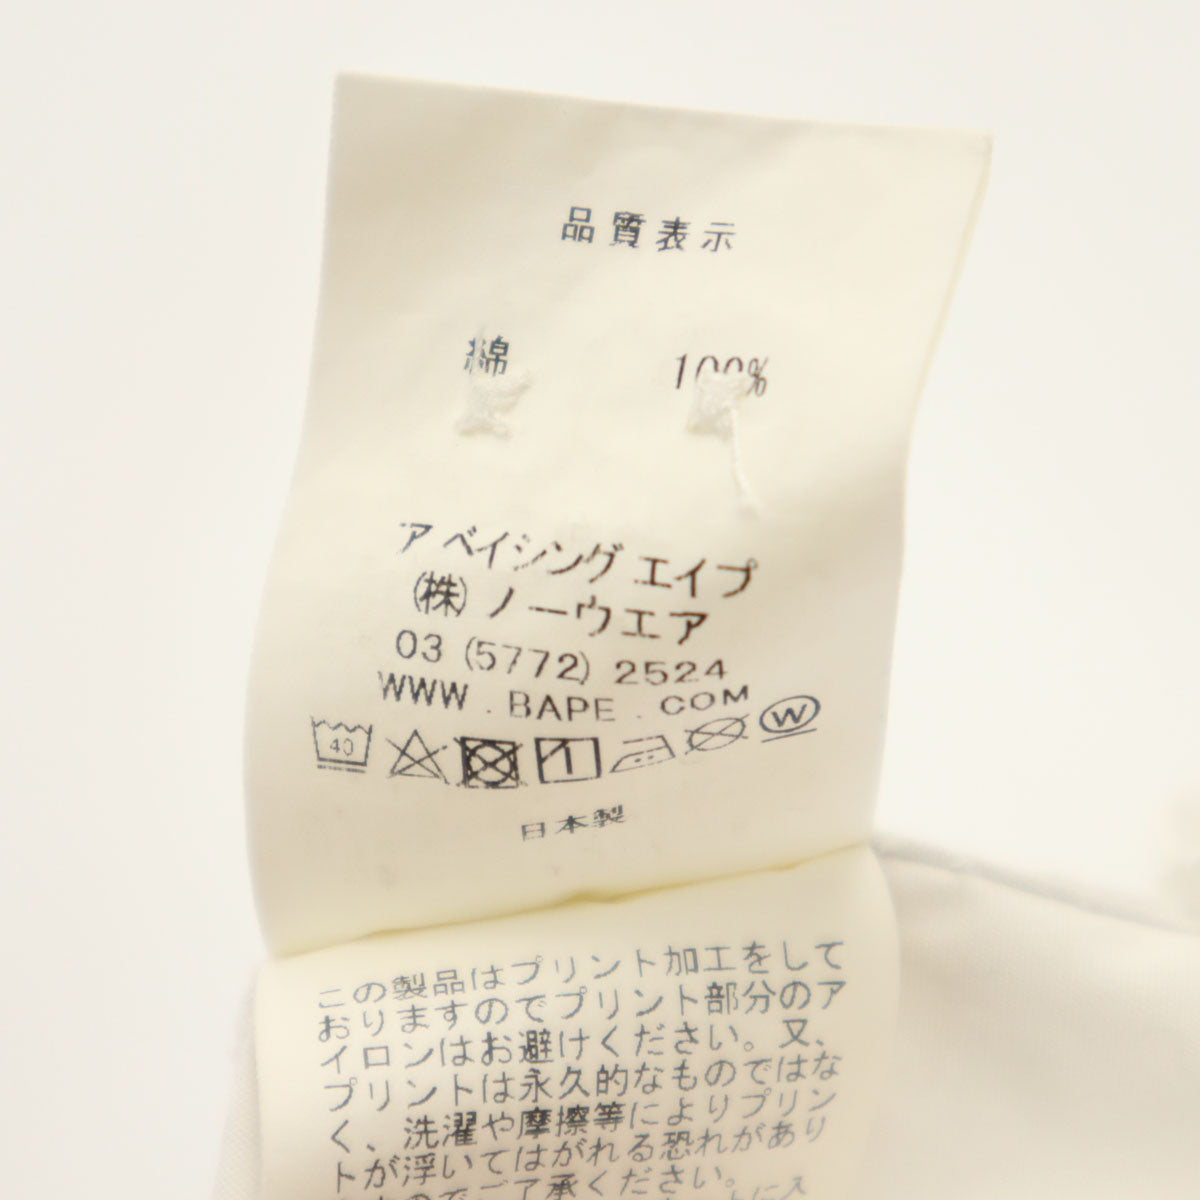 品質表示
綿 100%
ア ベイシング エイプ
(株) ノーウエア
03 (5772) 2524
WWW . BAPE . COM
40 1 W
日本製
この製品はプリント加工をして
おりますのでプリント部分のア
イロンはお避けください。又、
プリントは永久的なものではな
く、洗濯や摩擦等によりプリン
トが浮いてはがれる恐れがあり
ご了承ください。